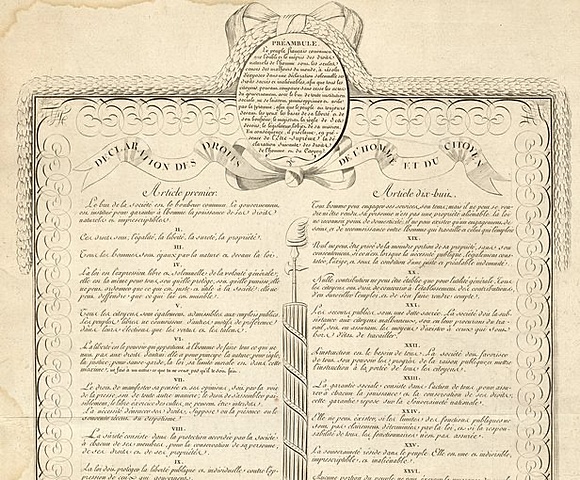 PRÉAMBULE.
Le peuple français convaincu
que l'oubli et le mépris des droits
naturels de l'homme sont les seules
causes des malheurs du monde, a résolu
d'exposer dans une déclaration solennelle ces
droits sacrés et inaliénables, afin que tous les
citoyens pouvant comparer sans cesse les actes
du gouvernement avec le but de toute institution
sociale, ne se laissent jamais opprimer et avilir
par la tyrannie; afin que le peuple ait toujours
devant les yeux les bases de sa liberté et de
son bonheur, le magistrat la règle de ses
devoirs, le législateur l'objet de sa mission.
En conséquence, il proclame, en pré-
sence de l'Être Suprême la dé-
claration suivante des droits
de l'homme et du Citoyen
DECLARATION DES DROITS DE L'HOMME ET DU CITOYEN
Article premier.
Le but de la Société est le bonheur commun. Le gouvernement
est institué pour garantir à l'homme la jouissance de ses droits
naturels et imprescriptibles.
II.
Ces droits sont, l'égalité, la liberté, la sureté, la propriété.
III.
Tous les hommes sont égaux par la nature et devant la loi.
IV.
La loi est l'expression libre et solennelle de la volonté générale;
elle est la même pour tous, soit qu'elle protège, soit qu'elle punisse; elle
ne peut ordonner que ce qui est juste et utile à la société; elle ne
peut deffendre que ce qui lui est nuisible.
V.
Tous les citoyens sont également admissibles aux emplois publics.
Les peuples libres ne connoissent d'autres motifs de préférence
dans leurs élections que les vertus et les talens.
VI.
La liberté est le pouvoir qui appartient à l'homme de faire tout ce qui ne
nuit pas aux droits d'autrui: elle a pour principe la nature; pour règle,
la justice; pour sauve-garde, la loi; sa limite morale est dans cette
maxime: ne fais à un autre ce que tu ne veux pas qu'il te soit fait.
VII.
Le droit de manifester sa pensée et ses opinions, soit par la voie
de la presse, soit de toute autre manière, le droit de s'assembler pai-
siblement, le libre exercice des cultes, ne peuvent être interdits.
La nécessité d'énoncer ces droits suppose ou la présence ou le
souvenir récent du despotisme.
VIII.
La sûreté consiste dans la protection accordée par la Société
à chacun de ses membres, pour la conservation de sa personne,
de ses droits et de ses propriétés.
IX.
La loi doit protéger la liberté publique et individuelle contre l'op-
pression de ceux qui gouvernent.
Article dix-huit.
Tout homme peut engager ses services, son tems; mais il ne peut se ven-
dre ni être vendu; sa personne n'est pas une propriété aliénable. la loi
ne reconnoit point de domesticité; il ne peut exister qu'un engagement de
soins et de reconnoissance entre l'homme qui travaille et celui qui l'emploie
XIX.
Nul ne peut être privé de la moindre portion de sa propriété, sans son
consentement, si ce n'est lorsque la nécessité publique, légalement cons-
tatée, l'exige, et sous la condition d'une juste et préalable indemnité.
XX.
Nulle contribution ne peut être établie que pour l'utilité générale. Tous
les citoyens ont droit de concourir à l'établissement des contributions,
d'en surveiller l'emploi, et de s'en faire rendre compte.
XXI.
Les secours publics sont une dette sacrée. La Société doit la sub-
sistance aux citoyens malheureux, soit en leur procurant du tra-
vail, soit en assurant les moyens d'exister à ceux qui sont
hors d'état de travailler.
XXII.
L'instruction est le besoin de tous. La Société doit favoriser
de tout son pouvoir les progrès de la raison publique, et mettre
l'instruction à la portée de tous les citoyens.
XXIII.
La garantie sociale consiste dans l'action de tous, pour assu-
rer à chacun la jouissance et la conservation de ses droits:
cette garantie repose sur la Souveraineté nationale.
XXIV.
Elle ne peut exister, si les limites des fonctions publiques ne
sont pas clairement déterminées par la loi, et si la respon-
sabilité de tous les fonctionnaires n'est pas assurée.
XXV.
La souveraineté réside dans le peuple. Elle est une et indivisible,
imprescriptible et inaliénable.
XXVI.
Aucune portion du peuple ne peut exercer la puissance du